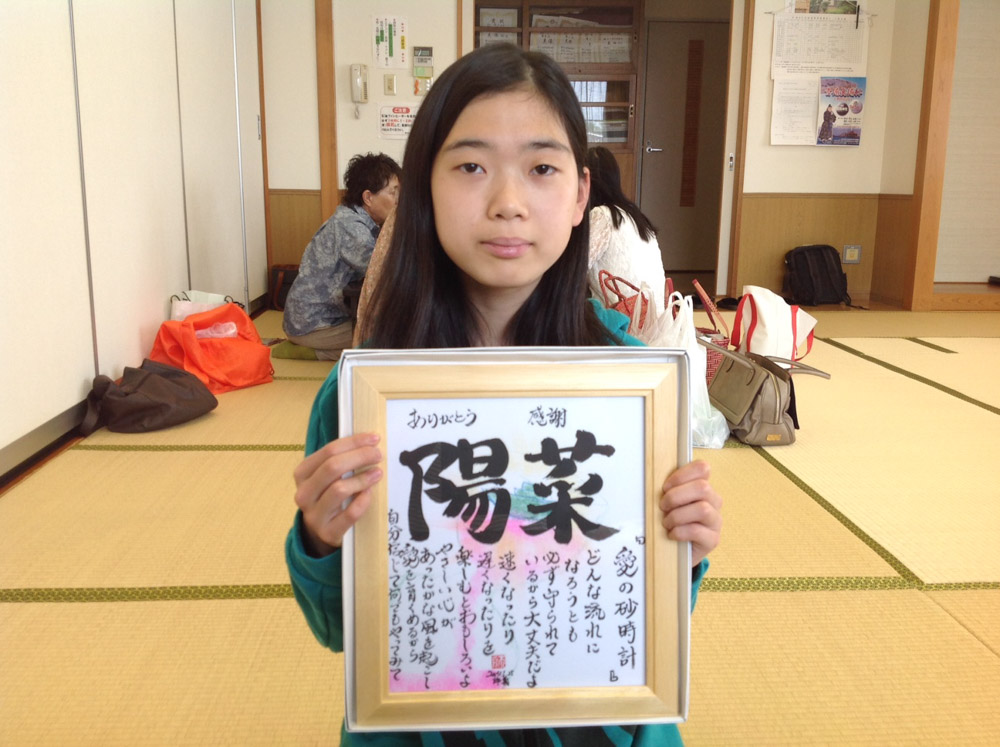 ありがとう 感謝
陽菜
『愛の砂時計』
どんな流れに
なろうとも
必ず守られて
いるから大丈夫だよ
速くなったり
遅くなったりを
楽しむとおもしろいよ
やさしい心が
あったかな風を起こし
愛を育くめるから
自分信じて何でもやってみて